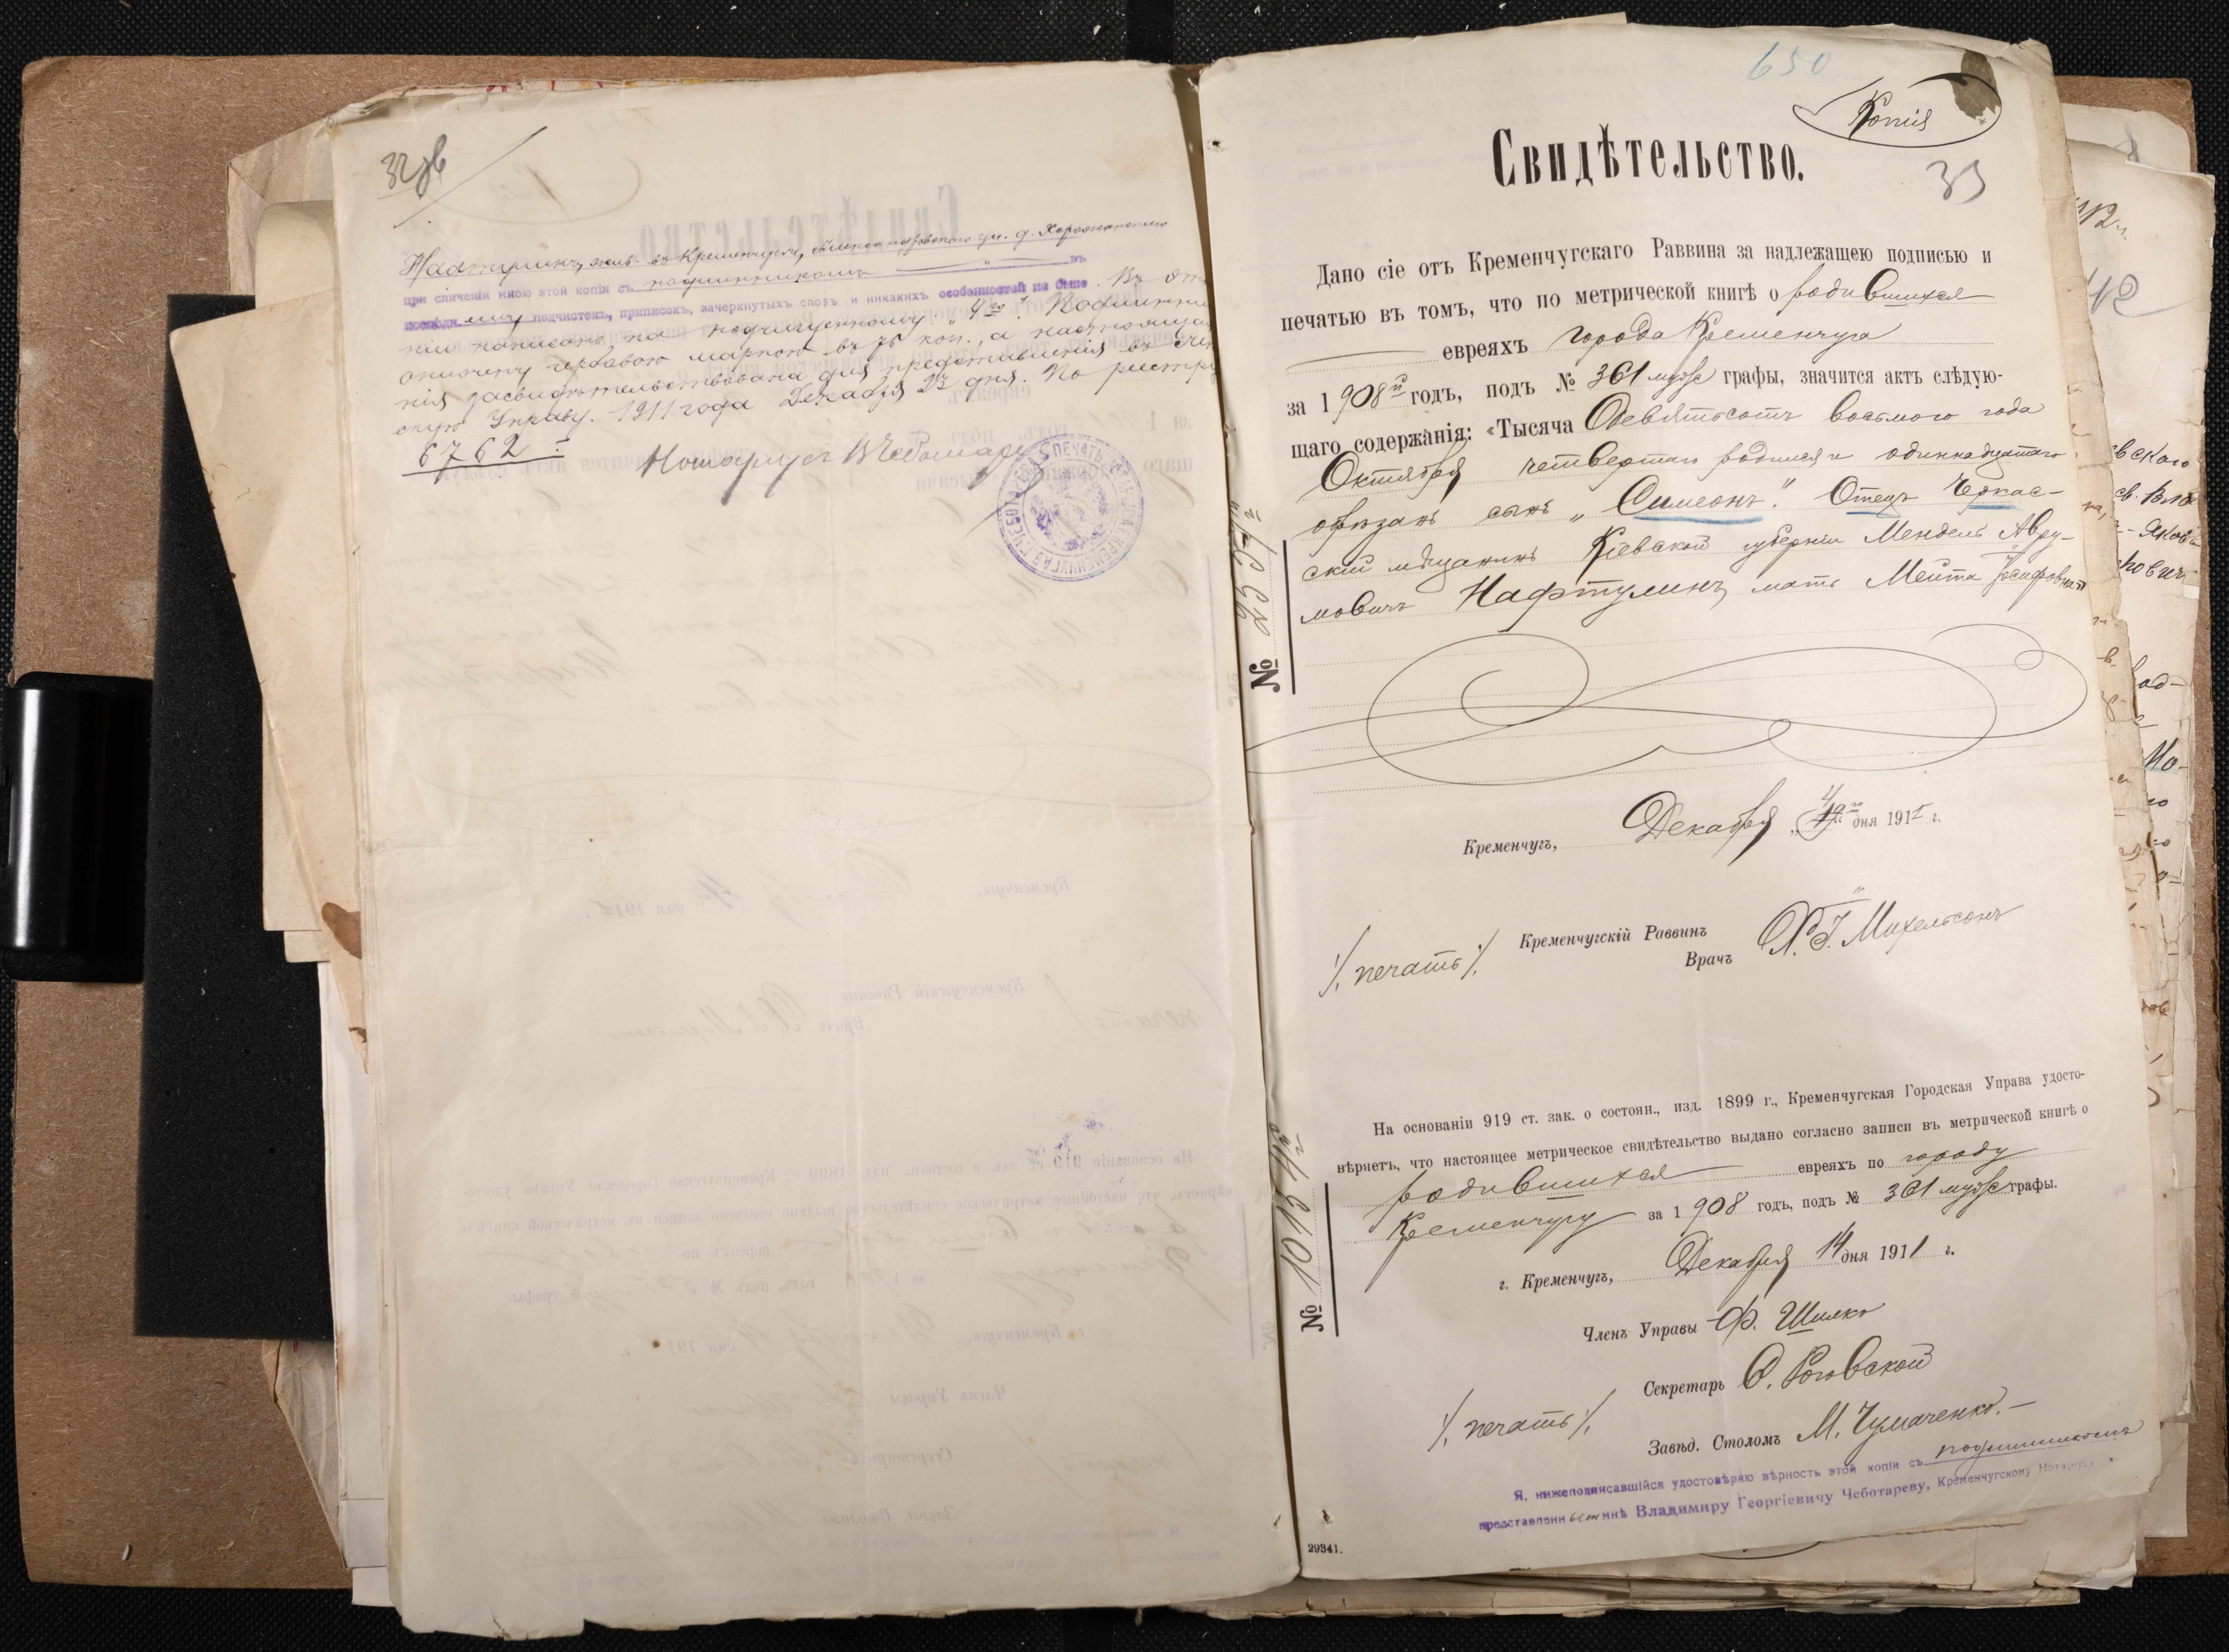 32 об
Нафтулинъ, жив. въ Кременчуге, Александровского уч. д. Хорожанского
при сличеніи мною этой копіи съ подлинникомъ — " — въ
подчистокъ, приписокъ, зачеркнутыхъ словъ и никакихъ особенностей не было. Въ
написано по подчищенному „4го". Подлинни
оплоченъ гербовою маркою въ 75 коп., а настоящая
нія засвидѣтельствована для представленія въ
скую Управу. 1911 года Декабря дня. По реестру
6762
Нотаріусъ В Чеботаревъ
650
Копія
Свидѣтельство.
33
Дано сіе отъ Кременчугскаго Раввина за надлежащею подписью и
печатью въ томъ, что по метрической книгѣ о родившихся
евреяхъ города Кременчуга
за 1908й годъ, подъ № 361 мужс графы, значится актъ слѣдую-
щаго содержанія: «Тысяча Девятьсотъ восьмого года
Октября четвертаго родился и одиннадцатаго
обрѣзанъ сынъ „Симеонъ". Отецъ Черкас-
скій мѣщанинъ Кіевской губерніи Мендель Авру-
мовичъ Нафтулинъ, мать Мейта Іосифовна"
№ 2359й
Кременчугъ, Декабря „4го дня 1911 г.
/. печать /. Кременчугскій Раввинъ
Врачъ Х. І. Михельсонъ
На основаніи 919 ст. зак. о состоян., изд. 1899 г., Кременчугская Городская Управа удосто-
вѣряетъ, что настоящее метрическое свидѣтельство выдано согласно записи въ метрической книгѣ о
родившихся евреяхъ по городу
Кременчугу за 1908 годъ, подъ № 361 мужс графы.
№ 10154й
г. Кременчугъ, Декабря 14 дня 1911 г.
Членъ Управы Ф. Шилко
Секретарь О. Роговской
/. печать /.
Завѣд. Столомъ М. Чумаченко.—
Я, нижеподписавшійся удостовѣряю вѣрность этой копіи съ подлинникомъ
представленнымъ мнѣ Владимиру Георгіевичу Чеботареву, Кременчугскому Нотаріусу
29341.